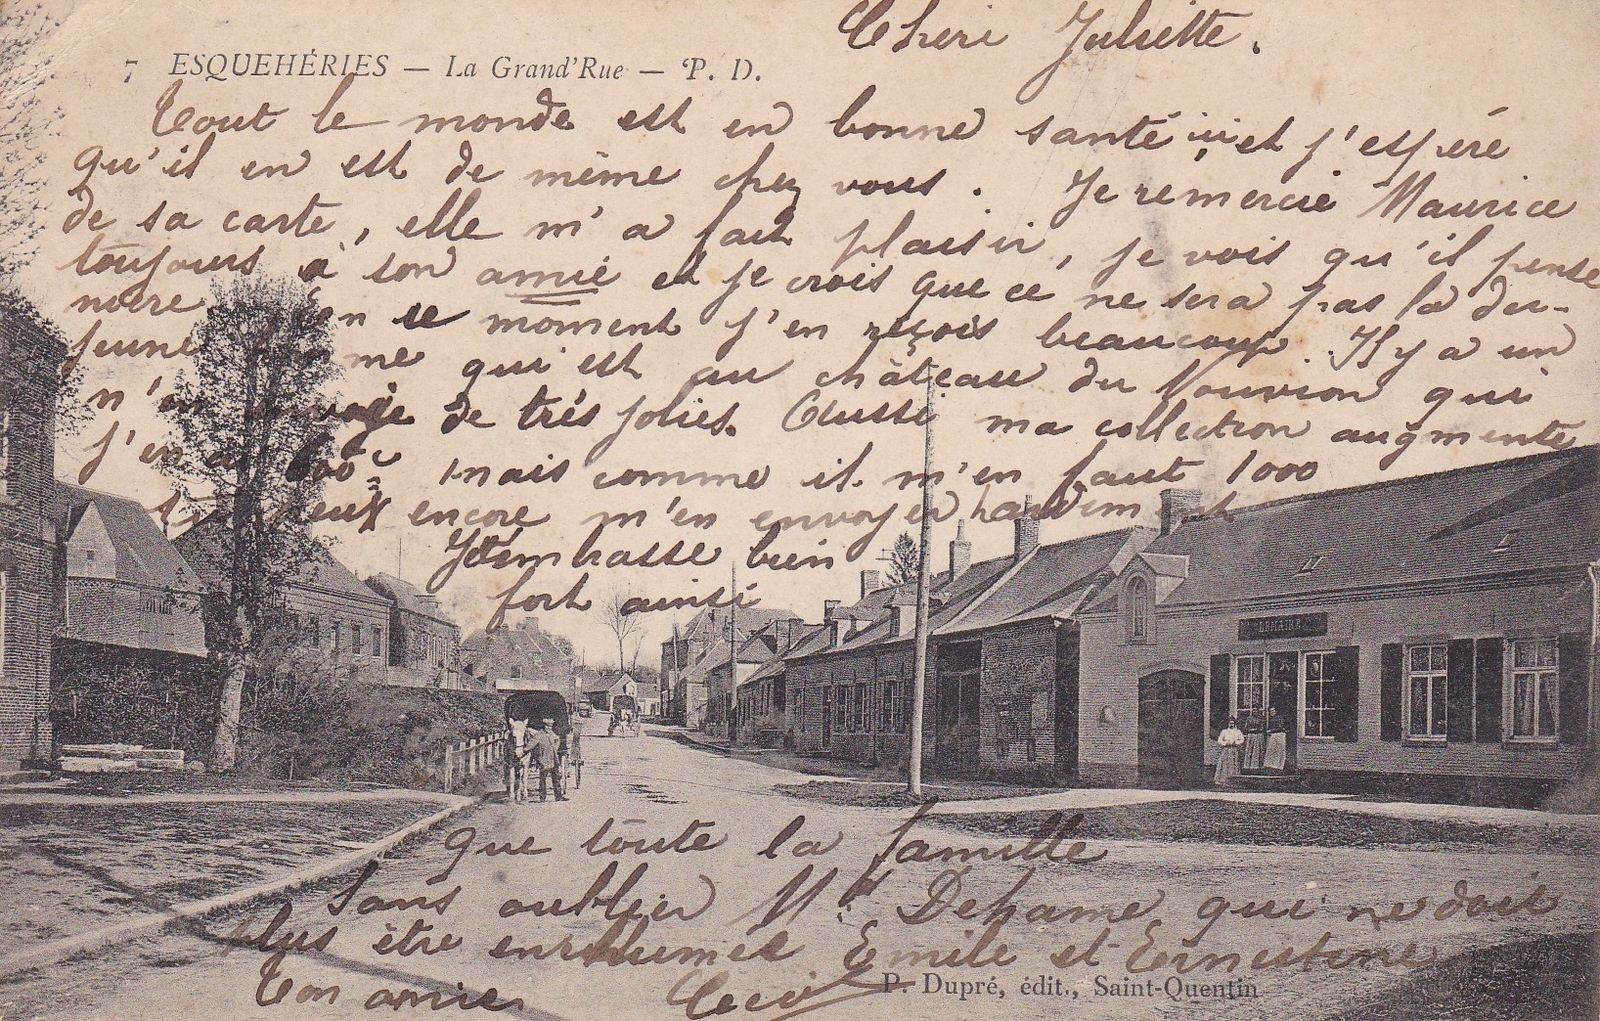 Cheri Juliette.
7 ESQUEHÉRIES — La Grand'Rue — P. D.
Tout le monde est en bonne santé ici et j'espére
qu'il en est de même chez vous. Je remercie Maurice
de sa carte, elle m'a fait plaisir, je vois qu'il pense
toujours à son amie et je crois que ce ne sera pas la der-
niere en ce moment j'en reçois beaucoup. Il y a un
jeune homme qui est au château du Nouvion qui
m'en envoje de très jolies. Aussi ma collection augmente
j'en ai mais comme il m'en faut 1000
tu peux encore m'en envoyer hardiment
Je t'embrasse bien
fort ainsi
LEMAIRE
que toute la famille
Sans oublier Dehame qui ne doit
plus être enrhumée Emile et Ernestine
Ton amie
P. Dupré, édit., Saint-Quentin